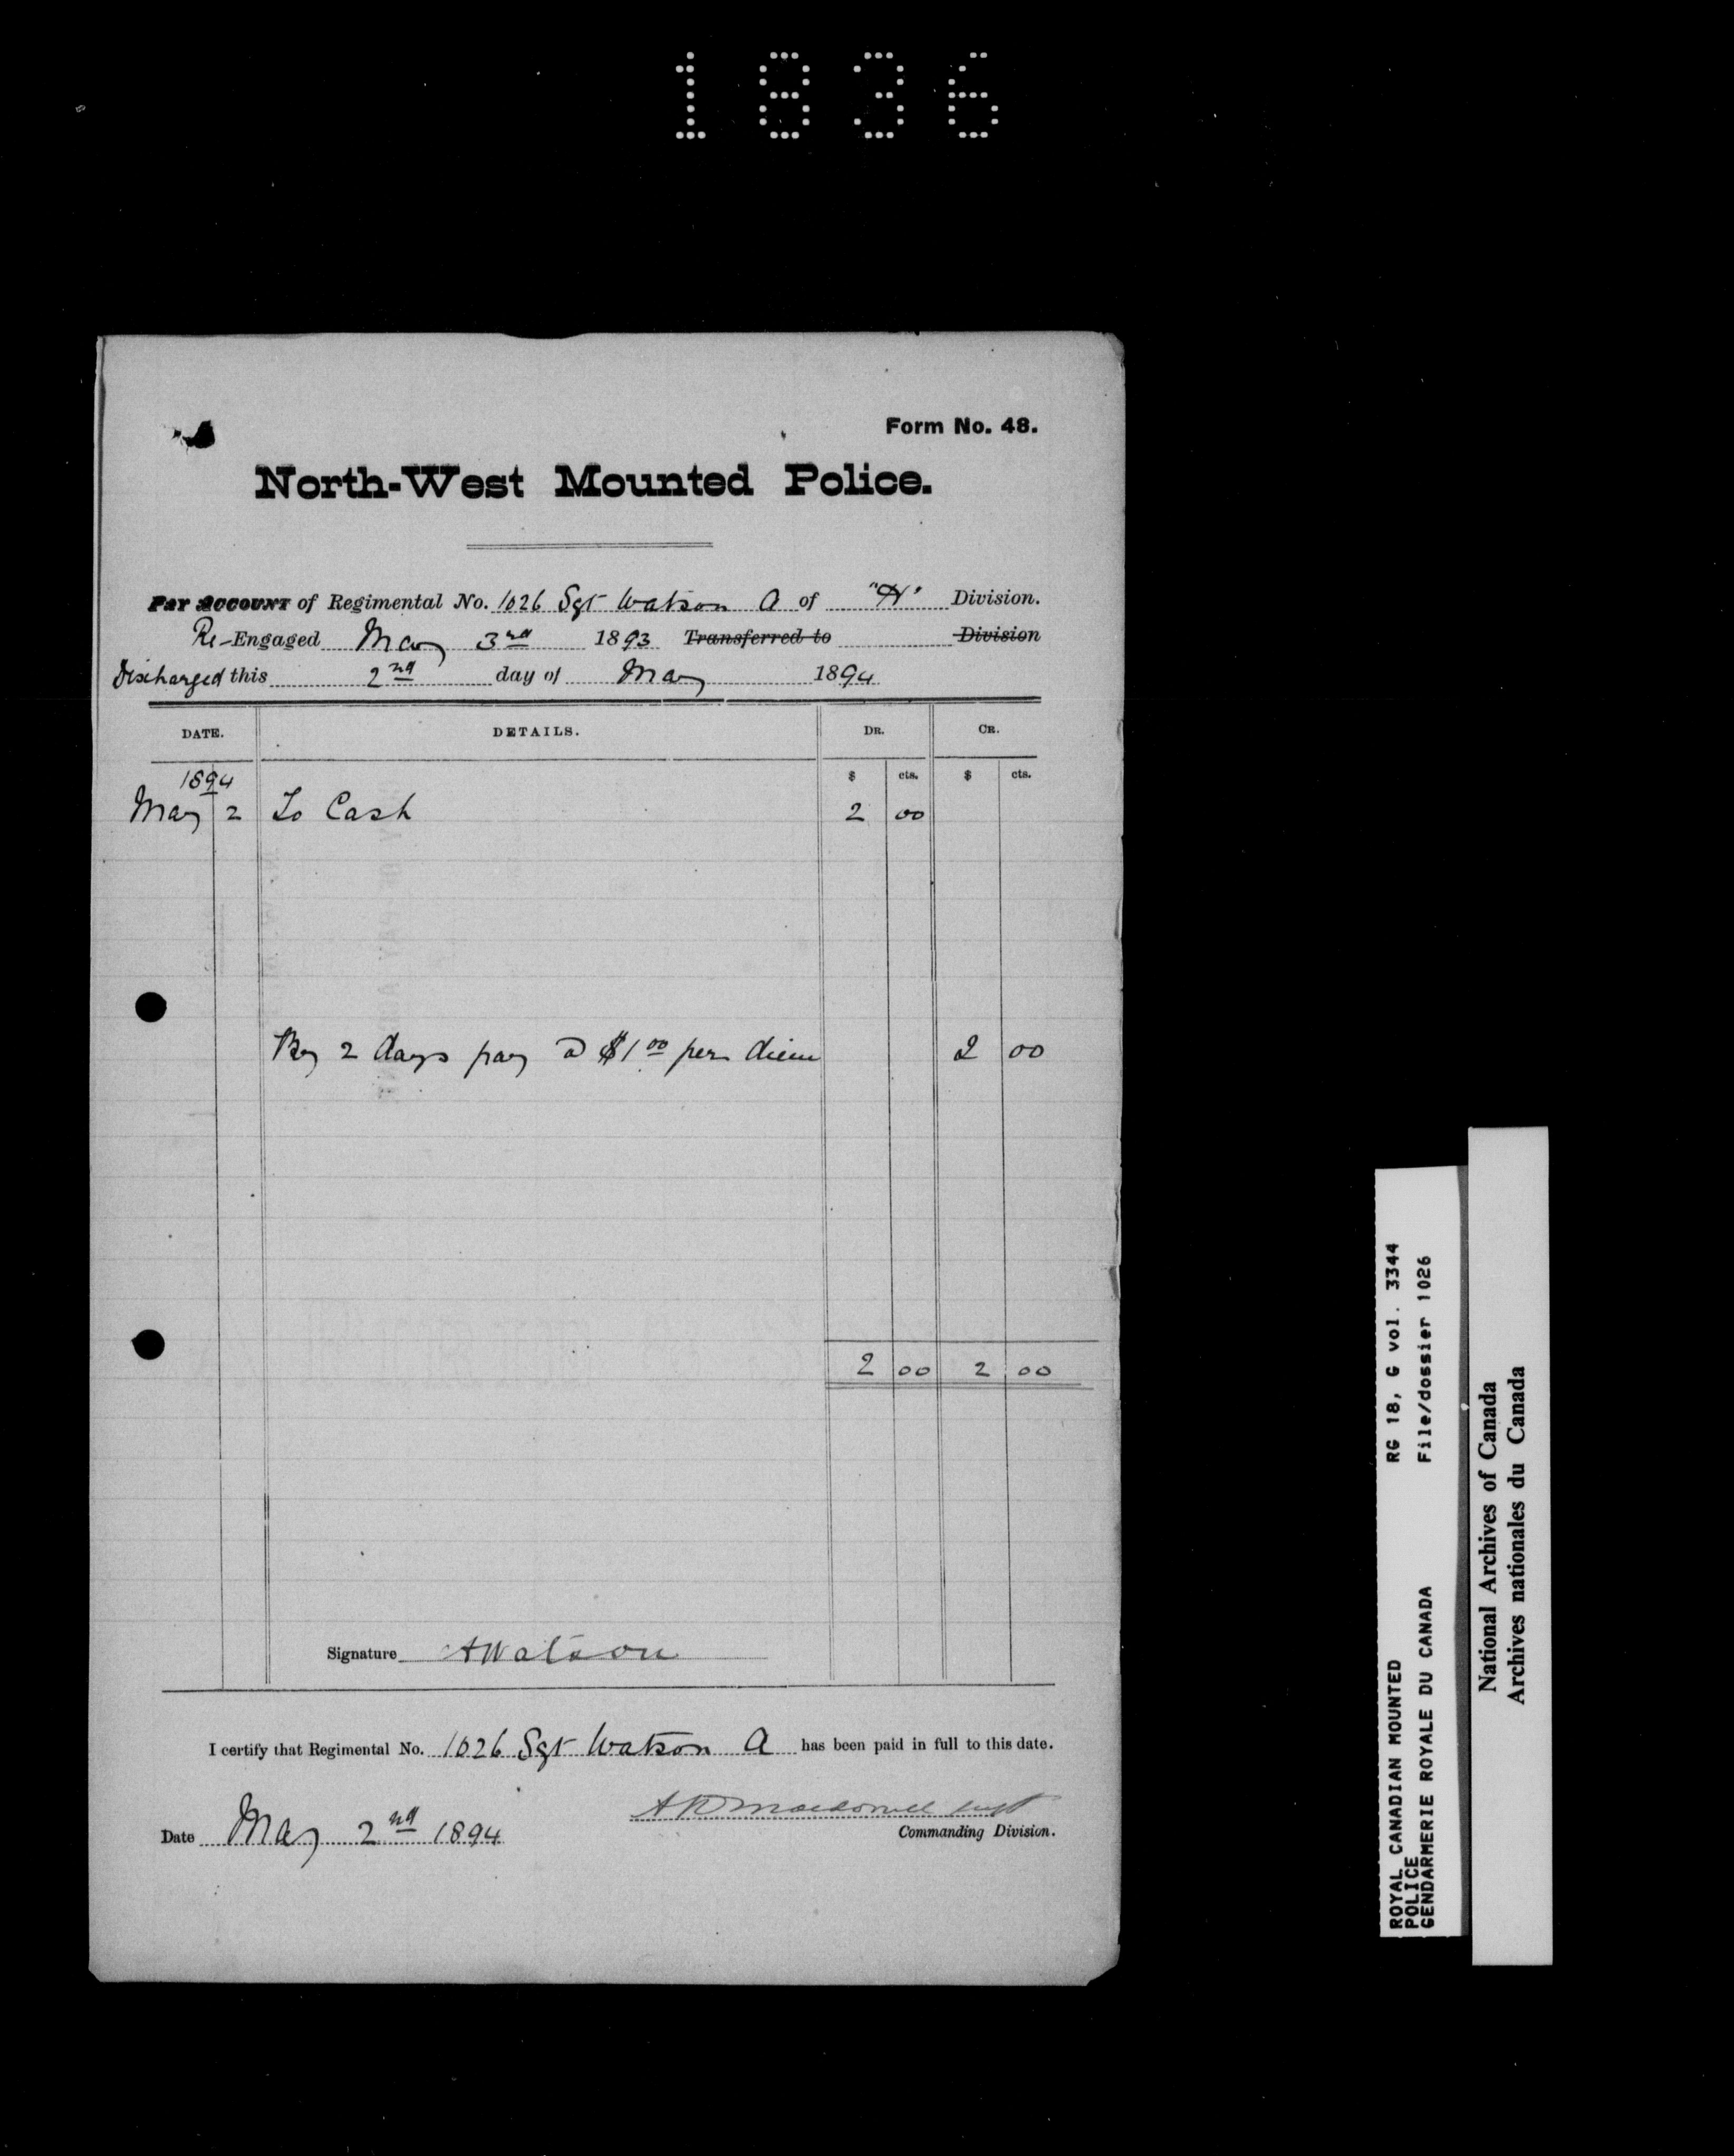 1836
Form No. 48.
North-West Mounted Police.
PAY ACCOUNT of Regimental No. 1026 Sgt Watson A of "H" Division.
Re-Engaged May 3rd 1893 Transferred to Division
Discharged this 2nd day of May 1894
DATE. DETAILS. DR. CR.
$ cts. $ cts.
1894
May 2 To Cash 2 00
By 2 days pay @ $1 00 per diem 2 00
2 00 2 00
Signature AWatson
I certify that Regimental No. 1026 Sgt Watson A has been paid in full to this date.
Date May 2nd 1894
Commanding Division.
ROYAL CANADIAN MOUNTED RG 18, G vol. 3344
POLICE
GENDARMERIE ROYALE DU CANADA File/dossier 1026
National Archives of Canada
Archives nationales du Canada